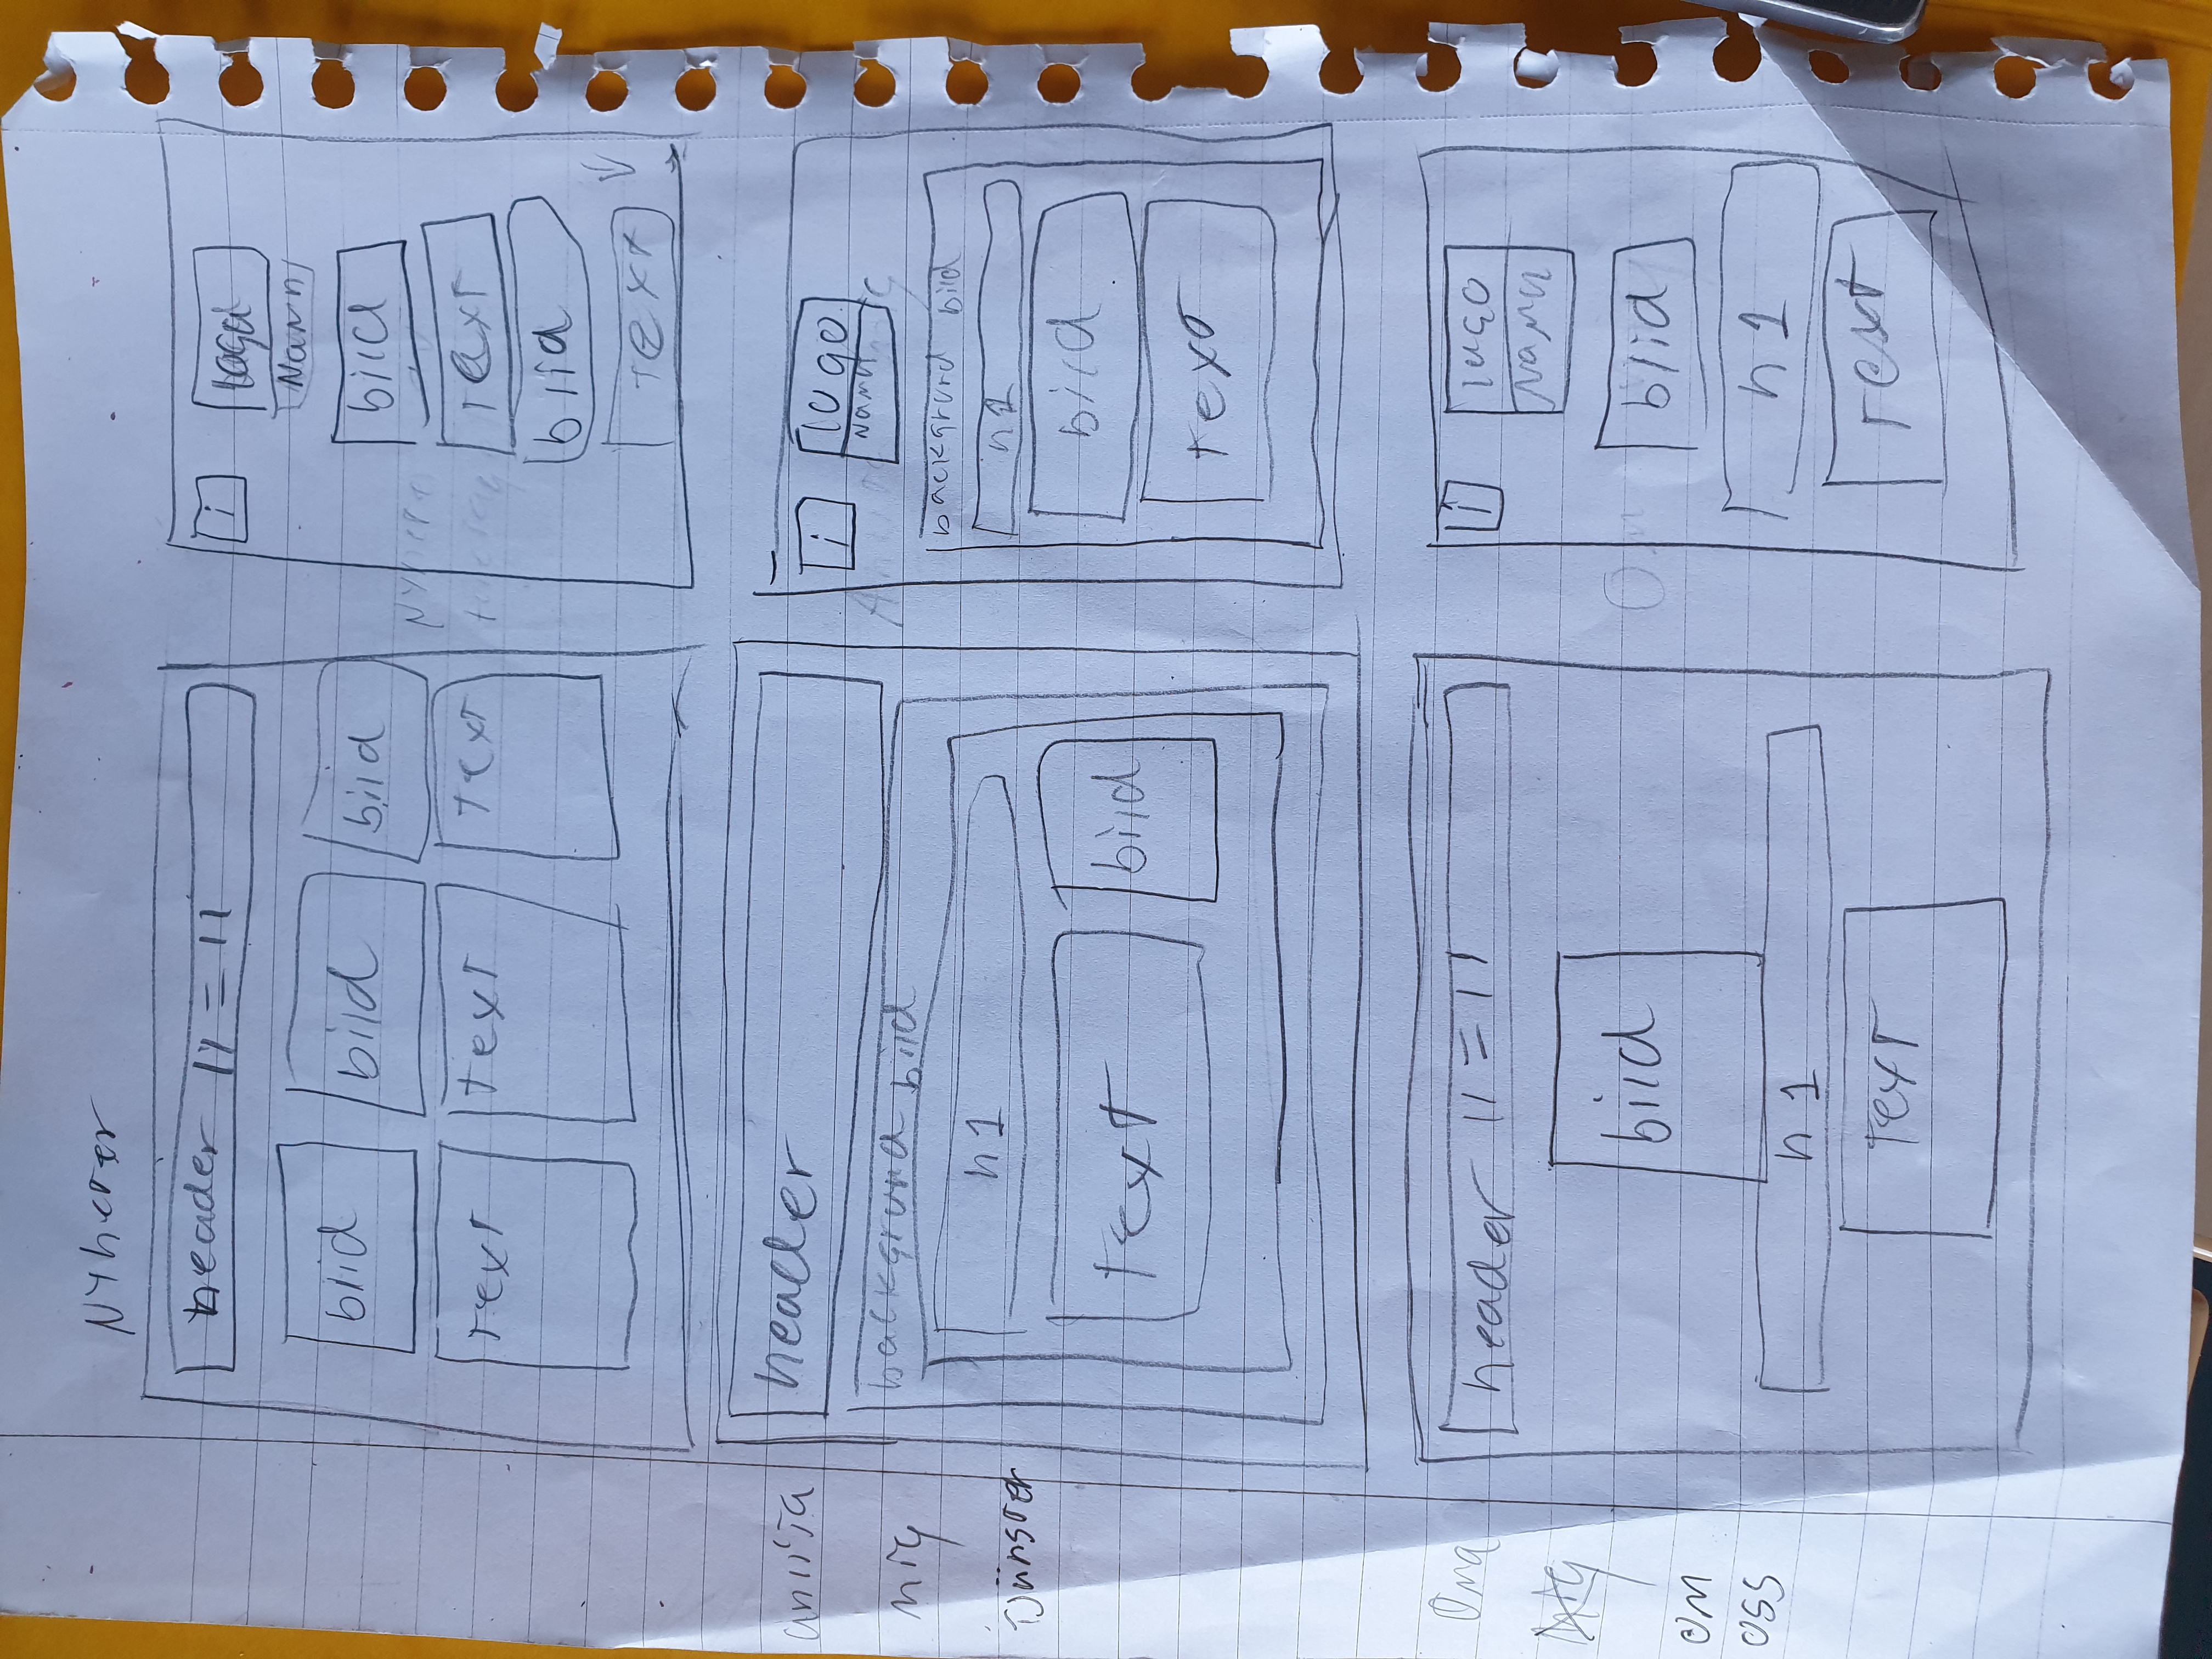 Nyheter
header 11 = 11
bild bild bild
text text text
i
logo
Namn
bild
text
bild
text
anlita
mig
tjänster
header
background bild
h1
text bild
i
logo
Namn
background bild
h1
bild
text
Om
oss
header 11 = 11
bild
h1
text
i
logo
Namn
bild
h1
text